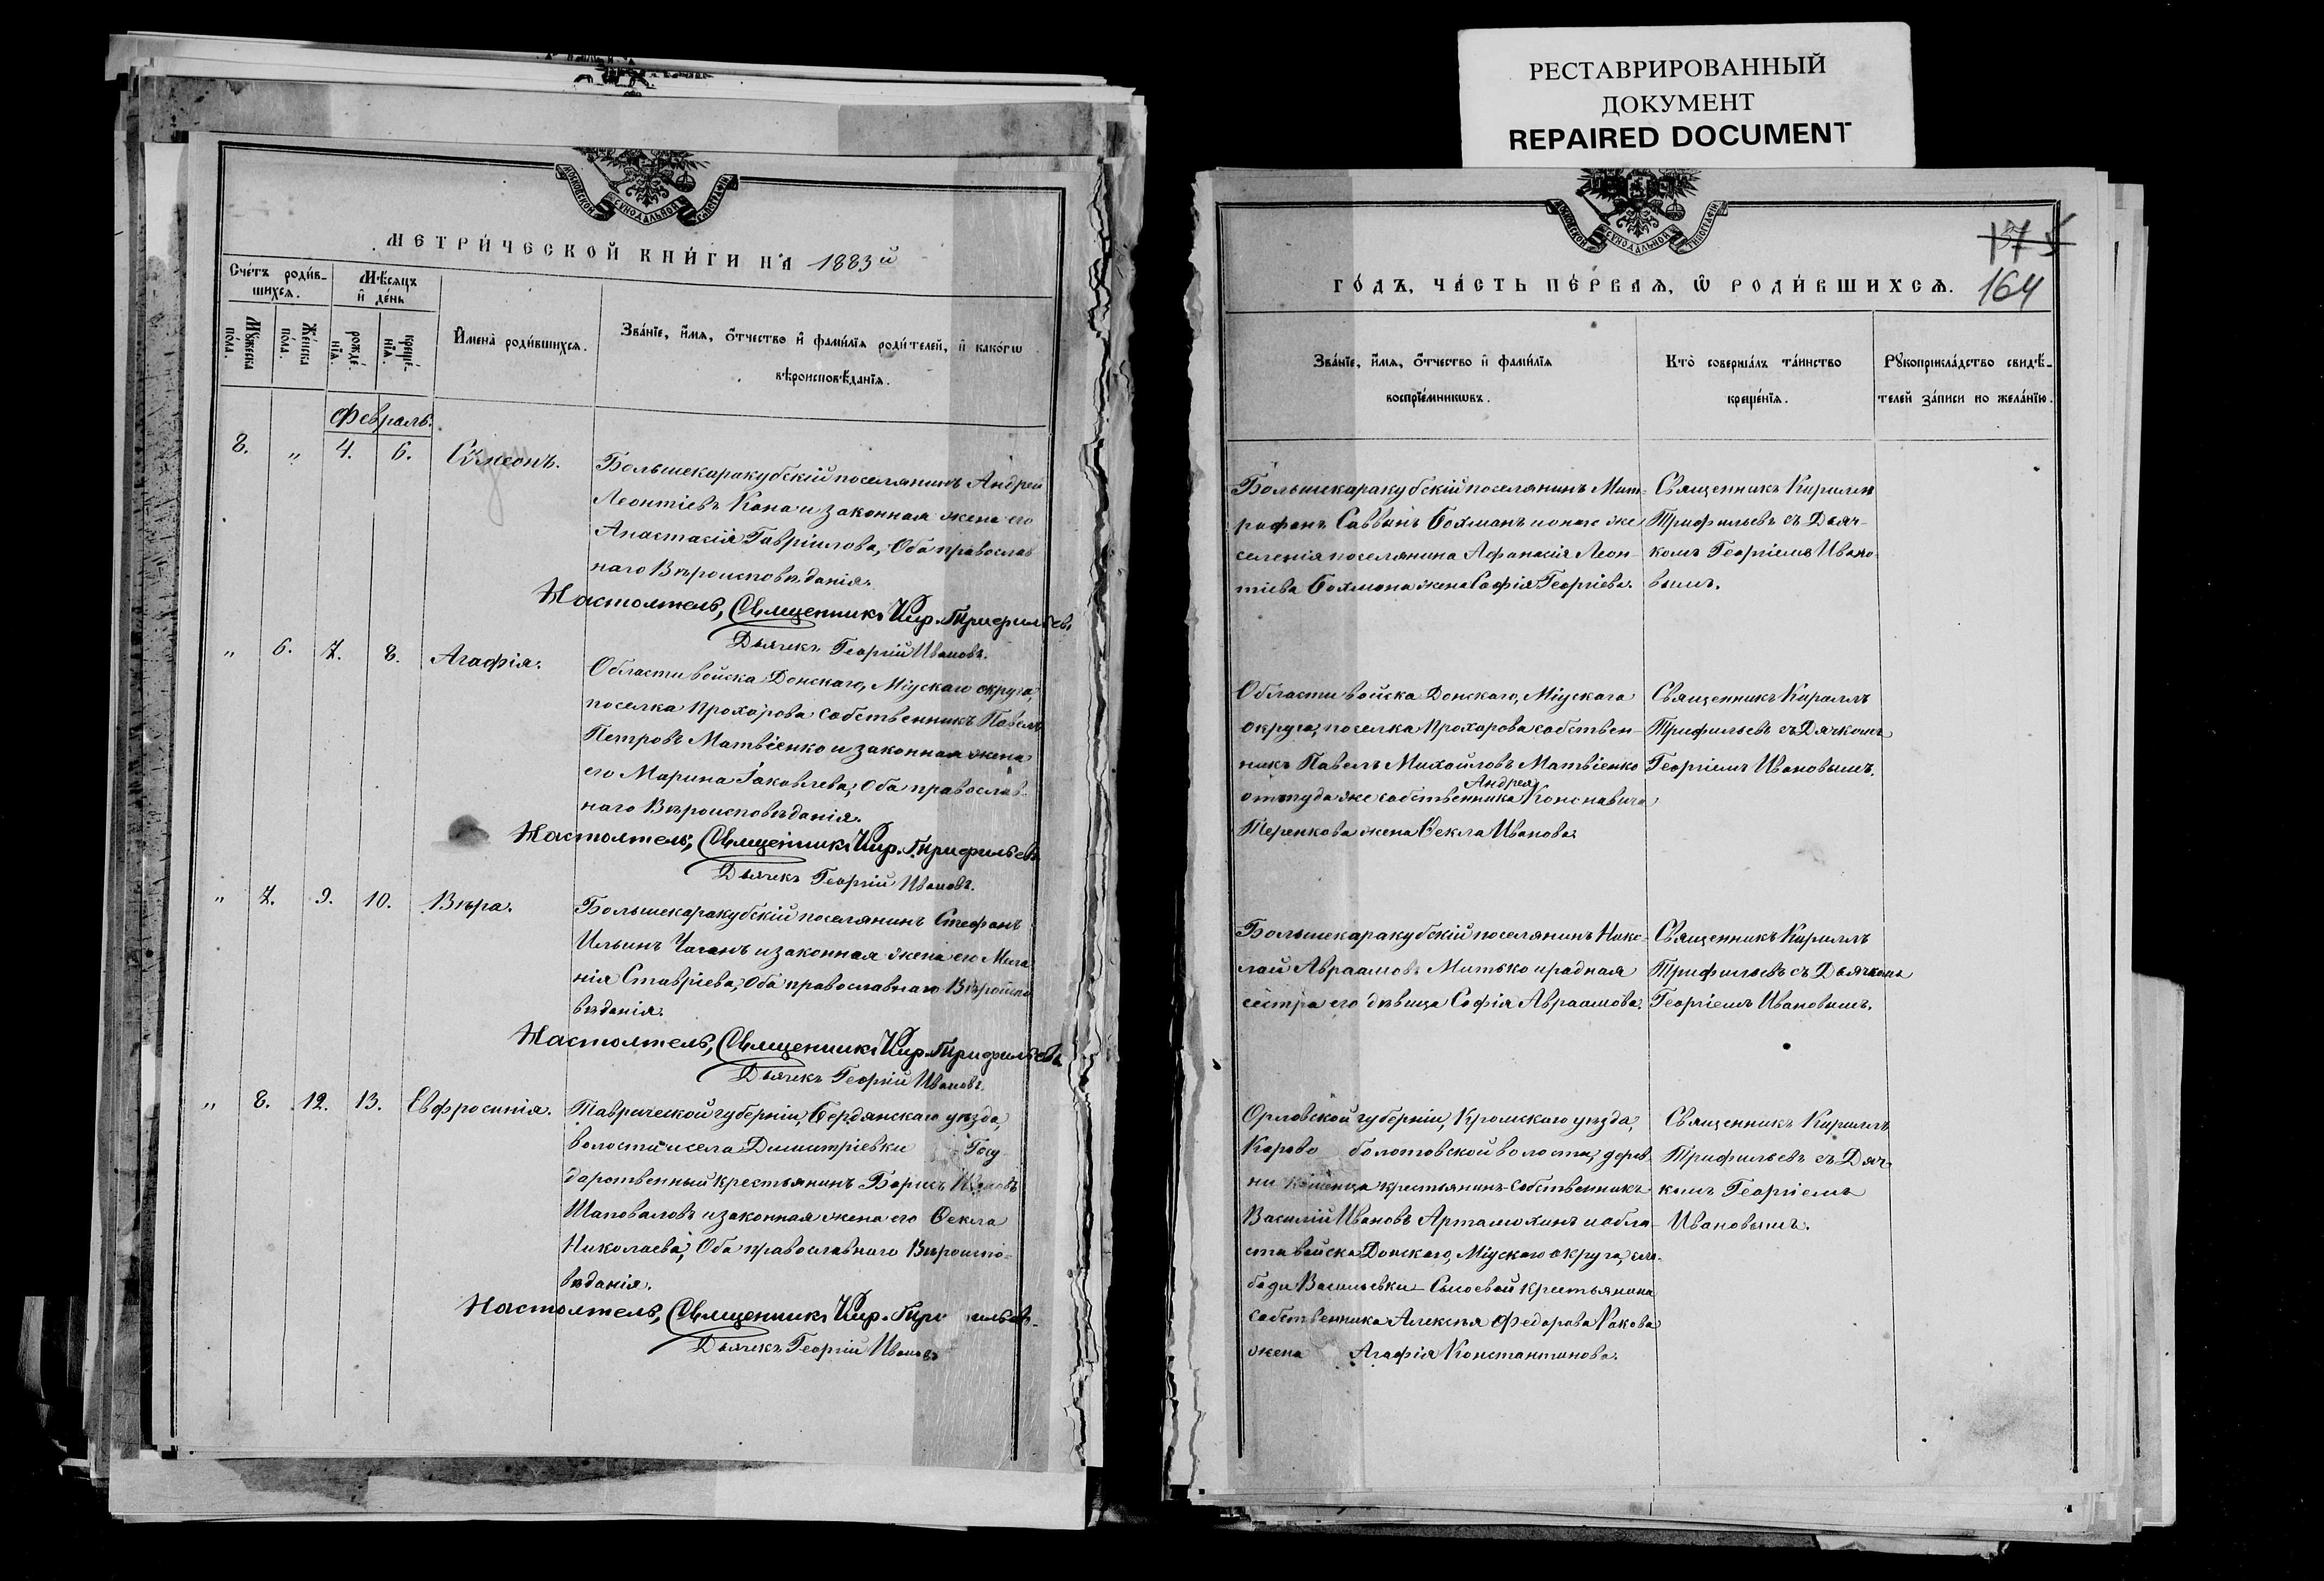 РЕСТАВРИРОВАННЫЙ
ДОКУМЕНТ
REPAIRED DOCUMENT
МОСКОВСКОЙ СѴНОДАЛЬНОЙ ТИПОГРАФІИ
МЕТРИ́ЧЕСКОЙ КНИ́ГИ НА 1883й
Сче́тъ роди́в-
шихсѧ.
Мѣ́сѧцъ
и҆ де́нь
Мꙋ́жеска
по́ла.
Же́нска
по́ла.
рожде́-
нїѧ.
креще́-
нїѧ.
И҆мена̀ роди́вшихсѧ.
Зва́нїе, и҆́мѧ, ѻ҆́тчество и҆ фами́лїѧ роди́телей, и҆ како́гѡ
вѣроисповѣ́данїѧ.
Февраль.
8. „ 4. 6. Сѵмеонъ.
Большекаракубскій поселянинъ Андрей
Леонтіевъ Кана и законная жена его
Анастасія Гавріилова, Оба православ
наго Вѣроисповѣданія.
Настоятель, Священникъ Кир. Трифильевъ
Дьячекъ Георгій Ивановъ.
„ 6. 7. 8. Агафія.
Области войска Донскаго, Міускаго округа,
поселка Прохорова собственникъ Павелъ
Петровъ Матвіенко и законная жена
его Марина Іаковлева, Оба православ-
наго Вѣроисповѣданія.
Настоятель, Священникъ Кир. Трифильевъ
Дьячекъ Георгій Ивановъ.
„ 7. 9. 10. Вѣра.
Большекаракубскій поселянинъ Стефанъ
Ильинъ Чаганъ и законная жена его Мела
нія Ставріева, Оба православнаго Вѣроиспо
вѣданія.
Настоятель, Священникъ Кир. Трифильевъ
Дьячекъ Георгій Ивановъ.
„ 8. 12. 13. Евфросинія.
Таврической губерніи, Бердянскаго уѣзда,
волости и села Димитріевки Госу
дарственный крестьянинъ Борисъ Ивановъ
Шаповаловъ и законная жена его Ѳекла
Николаева, Оба православнаго Вѣроиспо-
вѣданія.
Настоятель, Священникъ Кир. Три ильевъ
Дьячекъ Георгій Ивановъ
МОСКОВСКОЙ СѴНОДАЛЬНОЙ ТИПОГРАФІИ
175
164
ГО́ДЪ, ЧА́СТЬ ПЕ́РВАѦ, Ѽ РОДИ́ВШИХСѦ.
Зва́нїе, и҆́мѧ, ѻ҆́тчество и҆ фами́лїѧ
воспрїе́мникѡвъ.
Кто̀ соверша́лъ та́инство
креще́нїѧ.
Рꙋкоприкла́дство свидѣ́-
телей за́писи по жела́нїю.
Большекаракубскій поселянинъ Мит-
рофанъ Саввинъ Бохманъ и онаго же
селенія поселянина Афанасія Леон-
тіева Бохмана жена Софія Георгіева.
Священникъ Кириллъ
Трифильевъ съ Дьяч-
комъ Георгіемъ Ивано-
вымъ.
Области войска Донскаго, Міускаго
округа, поселка Прохорова собствен-
никъ Павелъ Михайловъ Матвіенко
Андрея
оттуда же собственника Кононавича
Теренкова жена Ѳекла Иванова.
Священникъ Кириллъ
Трифильевъ съ Дячкомъ
Георгіемъ Ивановымъ.
Большекаракубскій поселянинъ Нико-
лай Авраамовъ Митько и родная
сестра его дѣвица Софія Авраамова.
Священникъ Кириллъ
Трифильевъ съ Дьячкомъ
Георгіемъ Ивановымъ.
Орловской губерніи, Кромскаго уѣзда,
Корово болотовской волости, дерев
ни крестьянинъ-собственникъ
Василій Ивановъ Артамохинъ и обла-
сти войска Донскаго, Міускаго округа, сло-
боды Васильевки-Сысоевой крестьянина
собственника Алексѣя Федорова Какова
жена Агафія Константинова.
Священникъ Кириллъ
Трифильевъ съ Дяч-
комъ Георгіемъ
Ивановымъ.